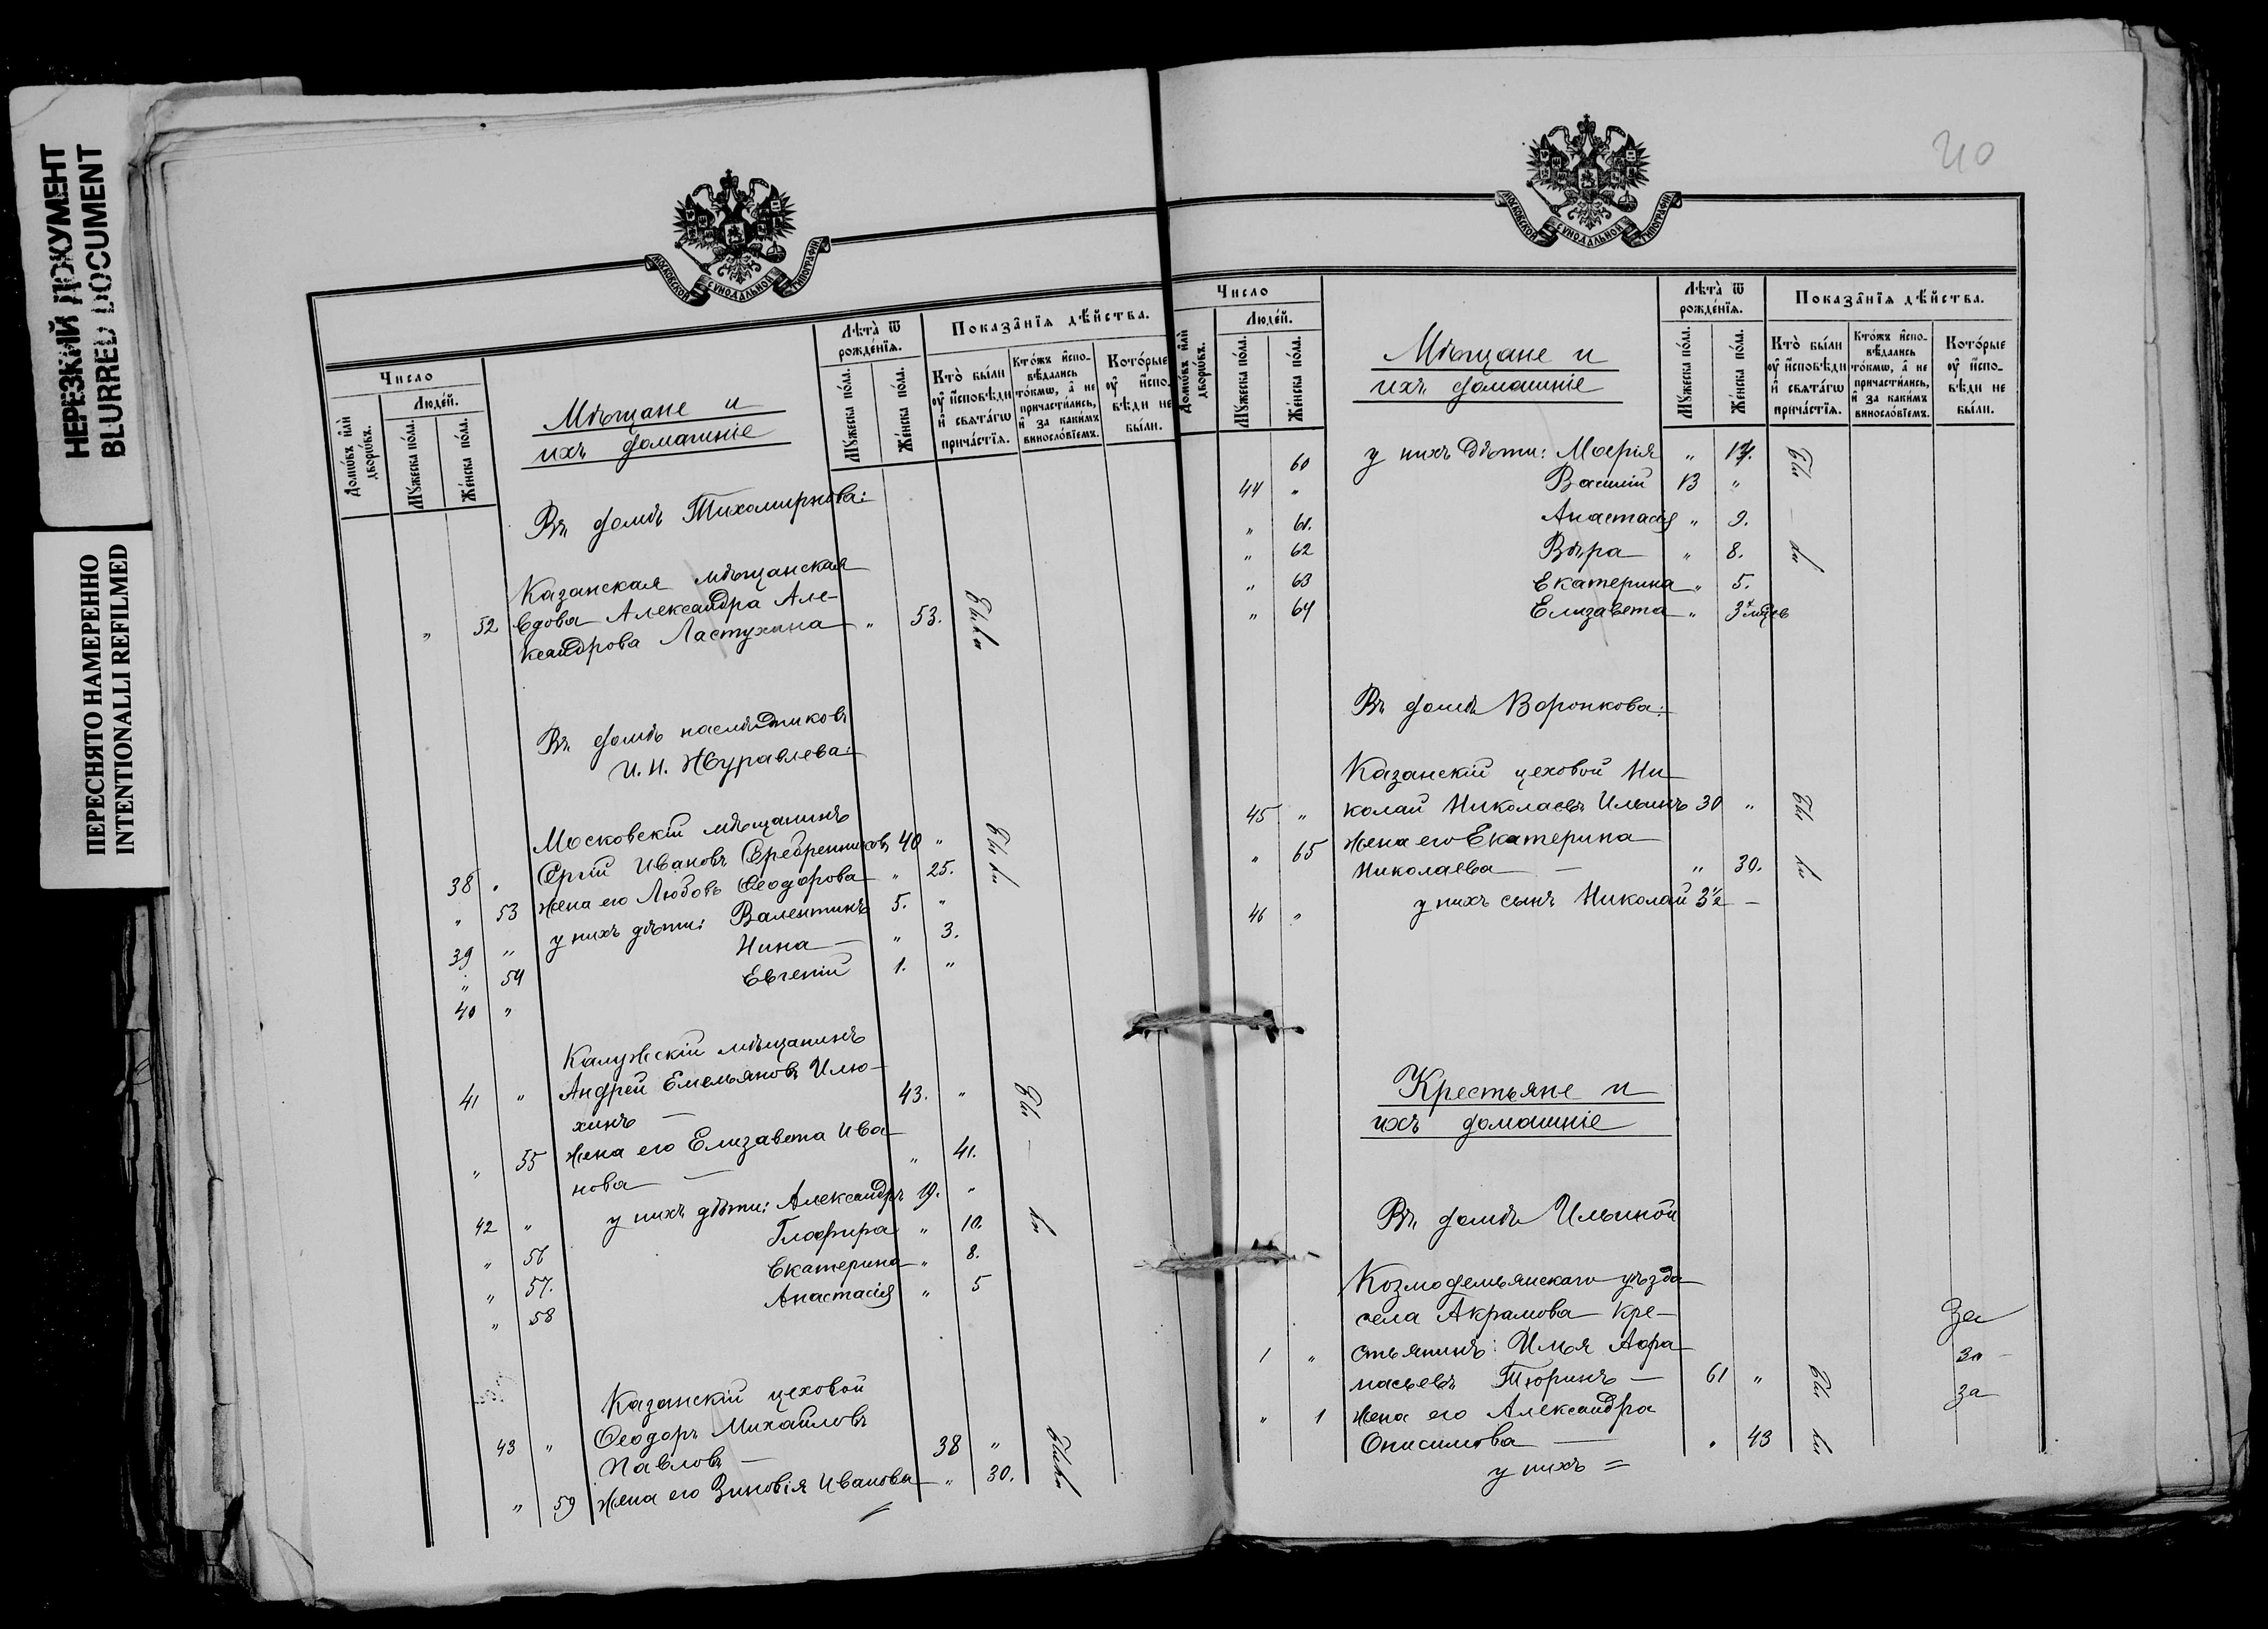 НЕРЕЗКИЙ ДОКУМЕНТ
BLURRED DOCUMENT
ПЕРЕСНЯТО НАМЕРЕННО
INTENTIONALLI REFILMED
МОСКОВСКОЙ СѴНОДАЛЬНОЙ ТИПОГРАФІИ
Число
Людей.
Домѡвъ или дворѡвъ.
Мужеска пола.
Женска пола.
Мѣщане и
ихъ домашніе
Лѣта ѿ рожденія.
Мужеска пола.
Женска пола.
Показанія дѣйства.
Кто были оу исповѣди и свѧтагѡ причастія.
Ктожъ исповѣдались токмѡ, а не причастились, и за какимъ винословіемъ.
Которые оу исповѣди не были.
Въ домѣ Тихомирнова:
Казанская мѣщанская
" 52 вдова Александра Але-
ксандрова Ластухина " 53. Были
Въ домѣ наслѣдниковъ
И. Н. Журавлева:
Московскій мѣщанинъ
38 " Сергій Ивановъ Серебренниковъ 40 " Бы
" 53 жена его Любовь Ѳеодорова " 25. ли
39 " у нихъ дѣти: Валентинъ 5. "
" 54 Нина — " 3.
40 " Евгеній 1. "
Калужскій мѣщанинъ
41 " Андрей Емельяновъ Илю-
хинъ — 43. " Бы —
" 55 жена его Елизавета Ива
нова — " 41.
42 " у нихъ дѣти: Александръ 19. " ли
" 56 Глафира " 10.
" 57. Екатерина " 8.
" 58 Анастасія " 5
Казанскій цеховой
43 " Ѳеодоръ Михайловъ
Павловъ — 38 " Были
" 59 жена его Зиновія Иванова " 30.
40
МОСКОВСКОЙ СѴНОДАЛЬНОЙ ТИПОГРАФІИ
Число
Людей.
Домѡвъ или дворѡвъ.
Мужеска пола.
Женска пола.
Мѣщане и
ихъ домашніе
Лѣта ѿ рожденія.
Мужеска пола.
Женска пола.
Показанія дѣйства.
Кто были оу исповѣди и свѧтагѡ причастія.
Ктожъ исповѣдались токмѡ, а не причастились, и за какимъ винословіемъ.
Которые оу исповѣди не были.
60 у нихъ дѣти: Марія " Бы
44 " Василій 13 "
" 61. Анастасія " 9. —
" 62 Вѣра " 8. ли
" 63 Екатерина " 5.
" 64 Елизавета "
Въ домѣ Воронкова:
Казанскій цеховой Ни
45 " колай Николаевъ Ильинъ 30 " Бы
" 65 жена его Екатерина
Николаева — " 30. ли
46 " у нихъ сынъ Николай 3½ —
Крестьяне и
ихъ домашніе
Въ домѣ Ильиной
Козмодемьянскаго уѣзда
села Акрамова кре- За
1 " стьянинъ: Илья Афа за
насьевъ Тюринъ — 61 " Бы за
" 1 жена его Александра
Онисимова — " 43 ли
у нихъ =